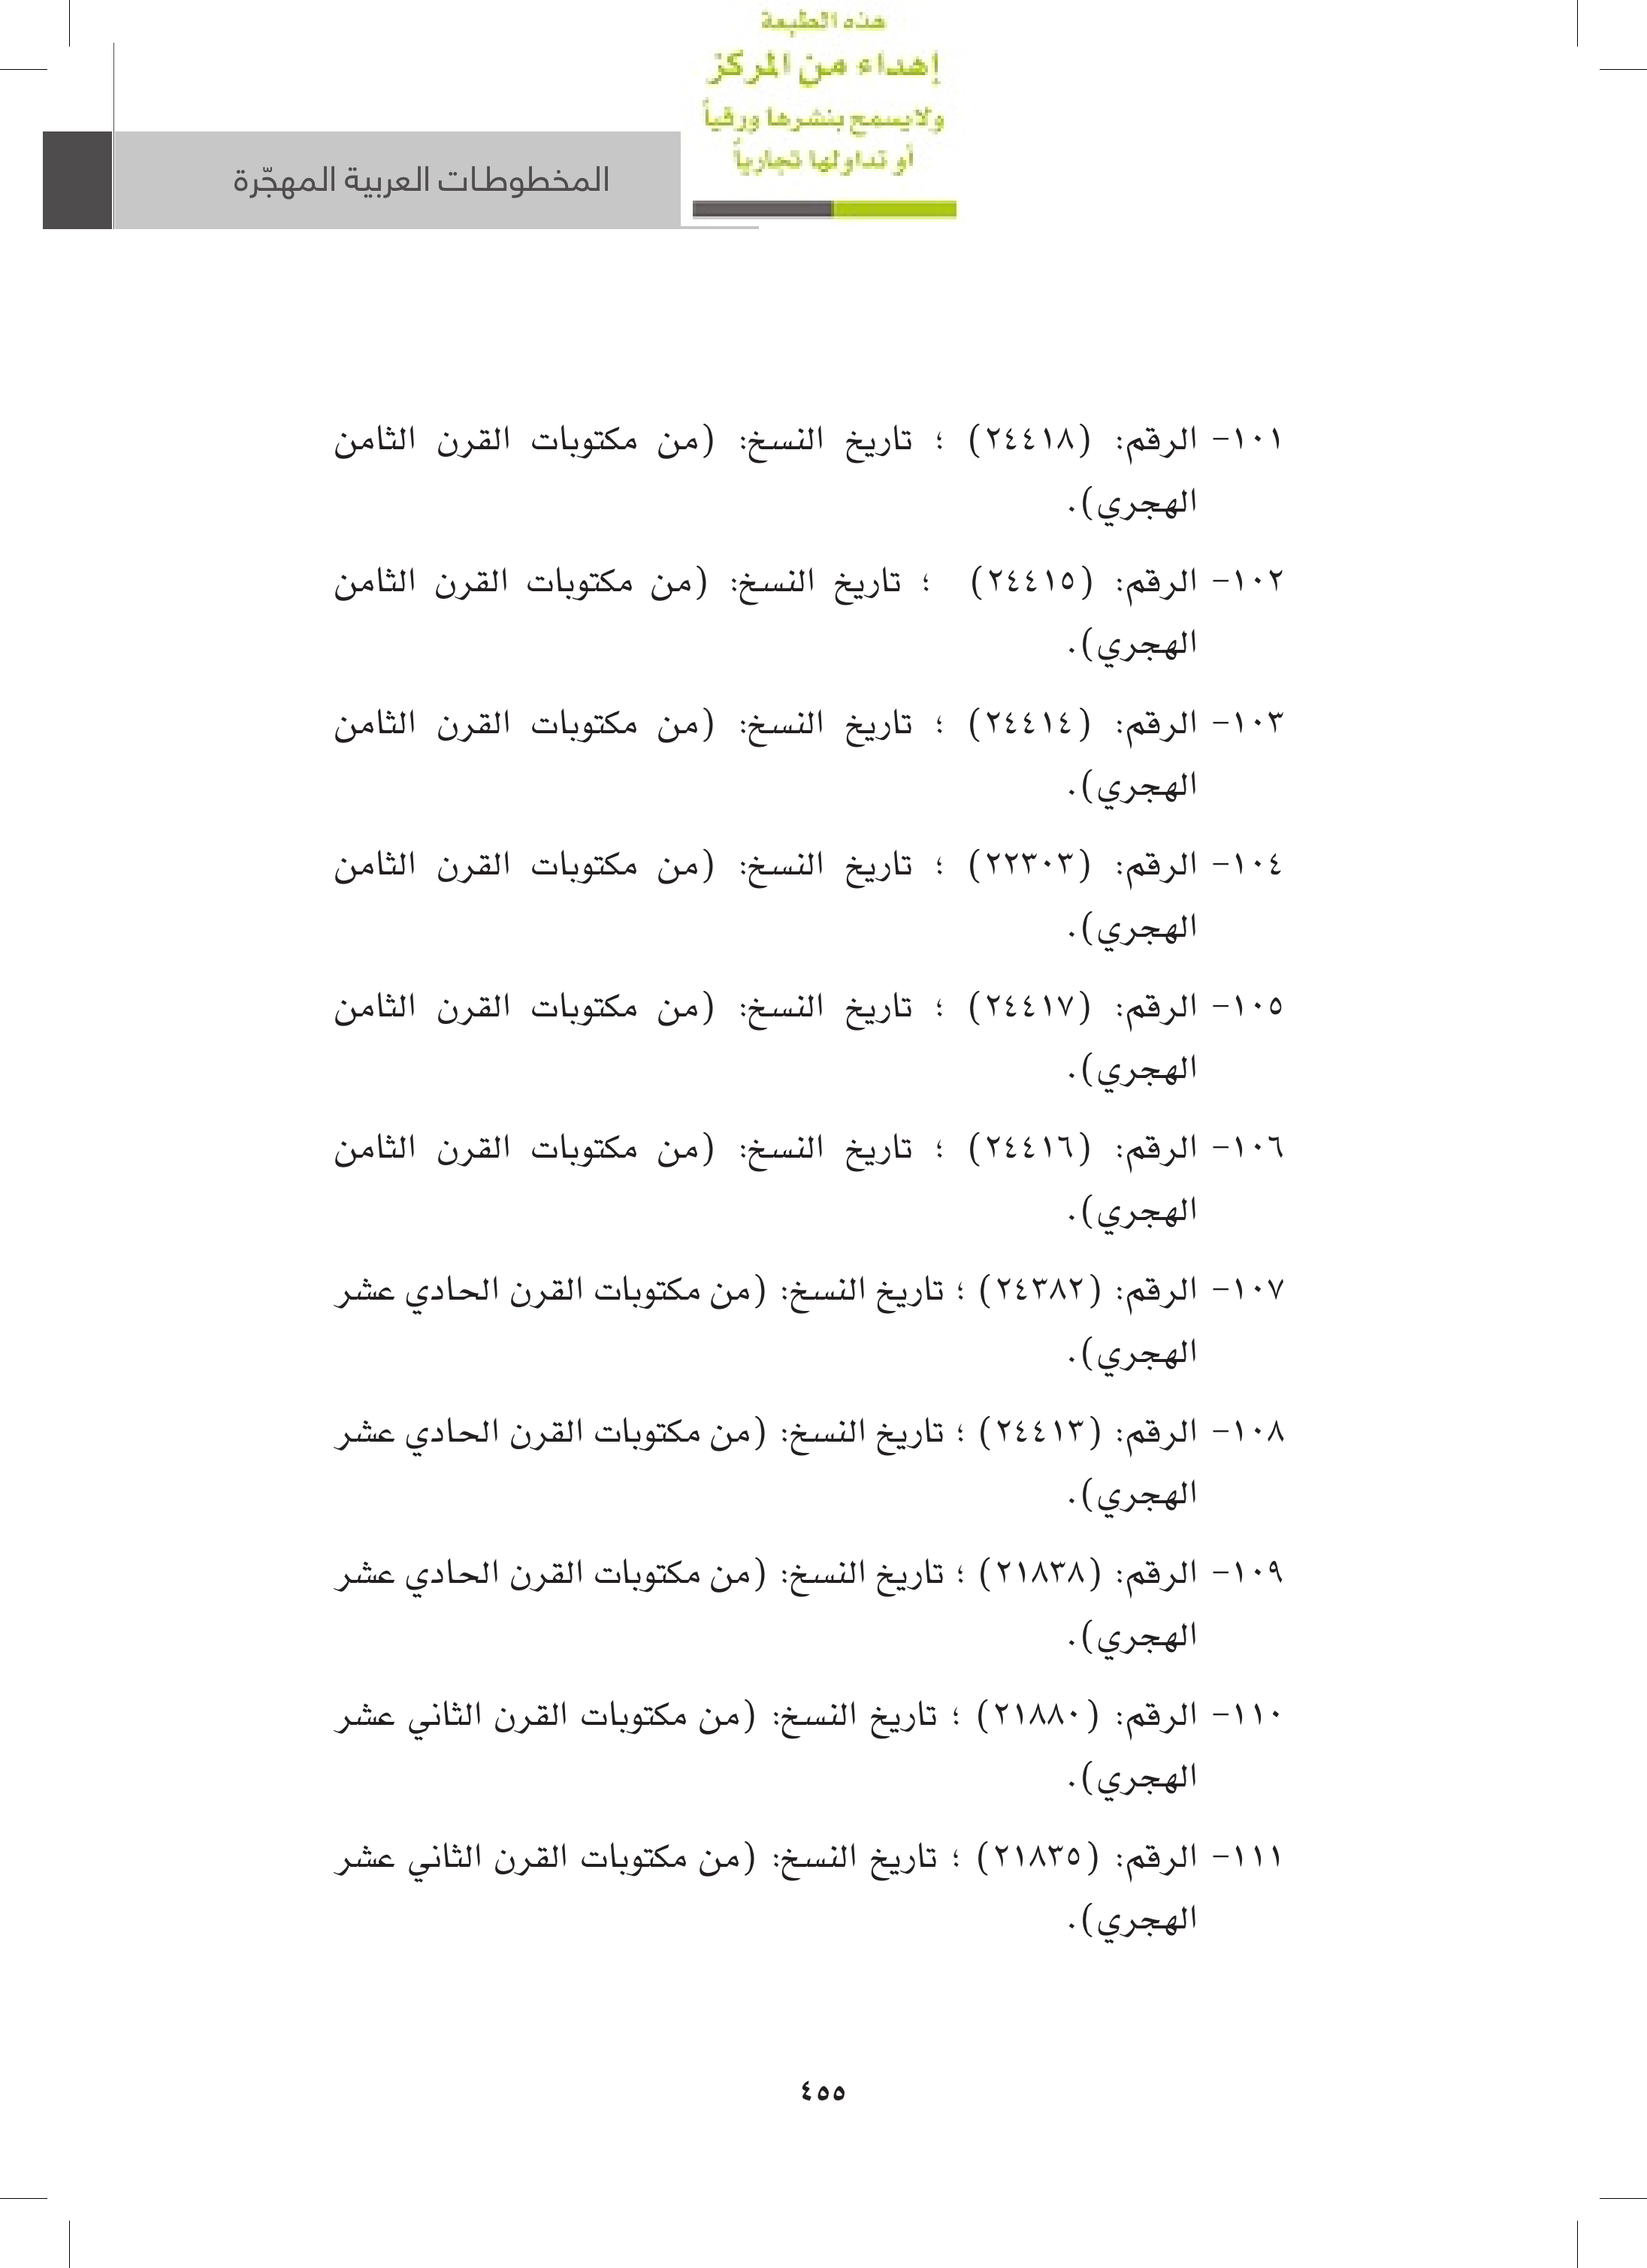 هذه الطبعة
إهداء من المركز
ولايسمح بنشرها ورقياً
أو تداولها تجارياً
المخطوطات العربية المهجّرة
١٠١- الرقم: (٢٤٤١٨) ؛ تاريخ النسخ: (من مكتوبات القرن الثامن
الهجري).
١٠٢- الرقم: (٢٤٤١٥) ؛ تاريخ النسخ: (من مكتوبات القرن الثامن
الهجري).
١٠٣- الرقم: (٢٤٤١٤) ؛ تاريخ النسخ: (من مكتوبات القرن الثامن
الهجري).
١٠٤- الرقم: (٢٢٣٠٣) ؛ تاريخ النسخ: (من مكتوبات القرن الثامن
الهجري).
١٠٥- الرقم: (٢٤٤١٧) ؛ تاريخ النسخ: (من مكتوبات القرن الثامن
الهجري).
١٠٦- الرقم: (٢٤٤١٦) ؛ تاريخ النسخ: (من مكتوبات القرن الثامن
الهجري).
١٠٧- الرقم: (٢٤٣٨٢) ؛ تاريخ النسخ: (من مكتوبات القرن الحادي عشر
الهجري).
١٠٨- الرقم: (٢٤٤١٣) ؛ تاريخ النسخ: (من مكتوبات القرن الحادي عشر
الهجري).
١٠٩- الرقم: (٢١٨٣٨) ؛ تاريخ النسخ: (من مكتوبات القرن الحادي عشر
الهجري).
١١٠- الرقم: (٢١٨٨٠) ؛ تاريخ النسخ: (من مكتوبات القرن الثاني عشر
الهجري).
١١١- الرقم: (٢١٨٣٥) ؛ تاريخ النسخ: (من مكتوبات القرن الثاني عشر
الهجري).
٤٥٥